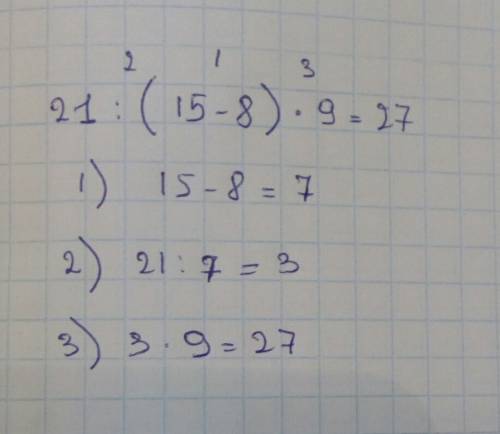 2 1 3
21 : ( 15 - 8 ) · 9 = 27
1) 15 - 8 = 7
2) 21 : 7 = 3
3) 3 · 9 = 27